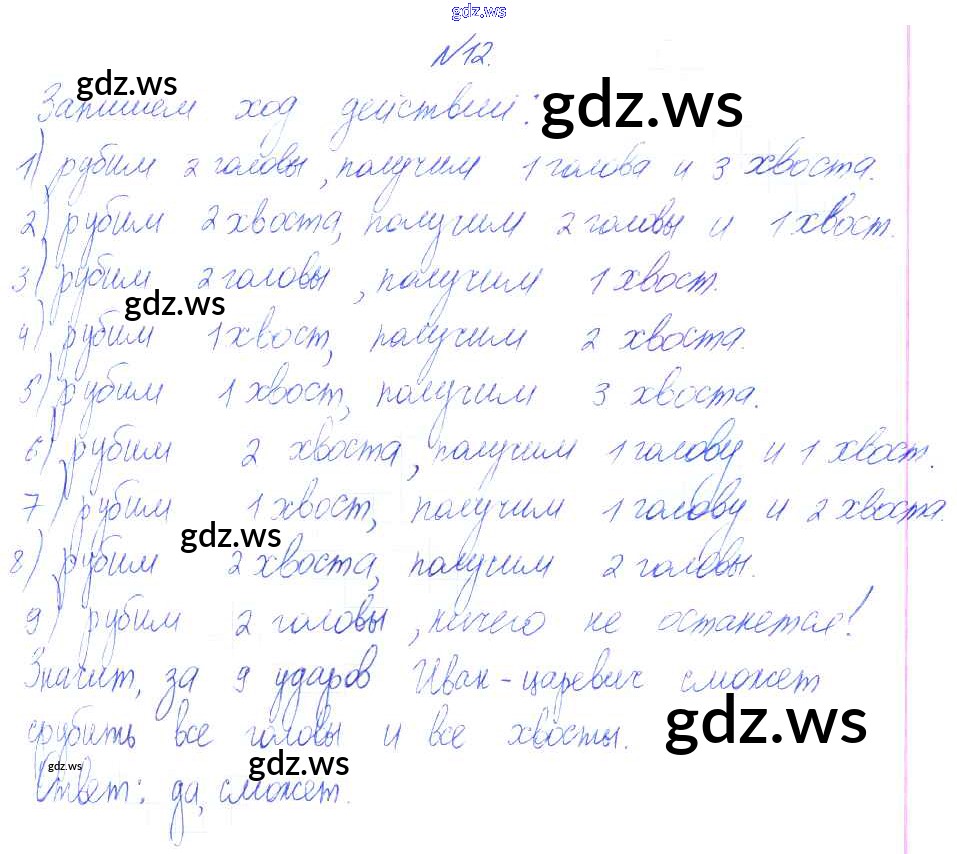 gdz.ws
N12.
gdz.ws
Запишем ход действий:
gdz.ws
1) рубим 2 головы, получим 1 голова и 3 хвоста.
2) рубим 2 хвоста, получим 2 головы и 1 хвост.
3) рубим 2 головы, получим 1 хвост.
gdz.ws
4) рубим 1 хвост, получим 2 хвоста.
5) рубим 1 хвост, получим 3 хвоста.
6) рубим 2 хвоста, получим 1 голову и 1 хвост.
7) рубим 1 хвост, получим 1 голову и 2 хвоста.
gdz.ws
8) рубим 2 хвоста, получим 2 головы.
9) рубим 2 головы, ничего не останется!
Значит, за 9 ударов Иван-царевич сможет
gdz.ws
срубить все головы и все хвосты.
gdz.ws
gdz.ws
Ответ: да, сможет.